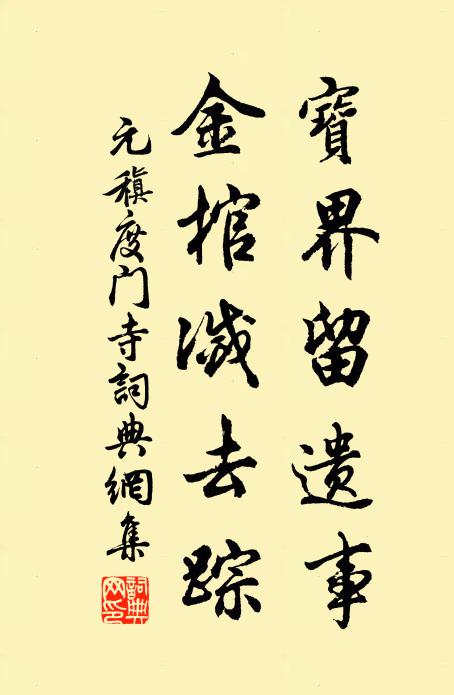 寶界留遺事
金棺滅去踪
元稹度門寺詞典網集
詞典網印